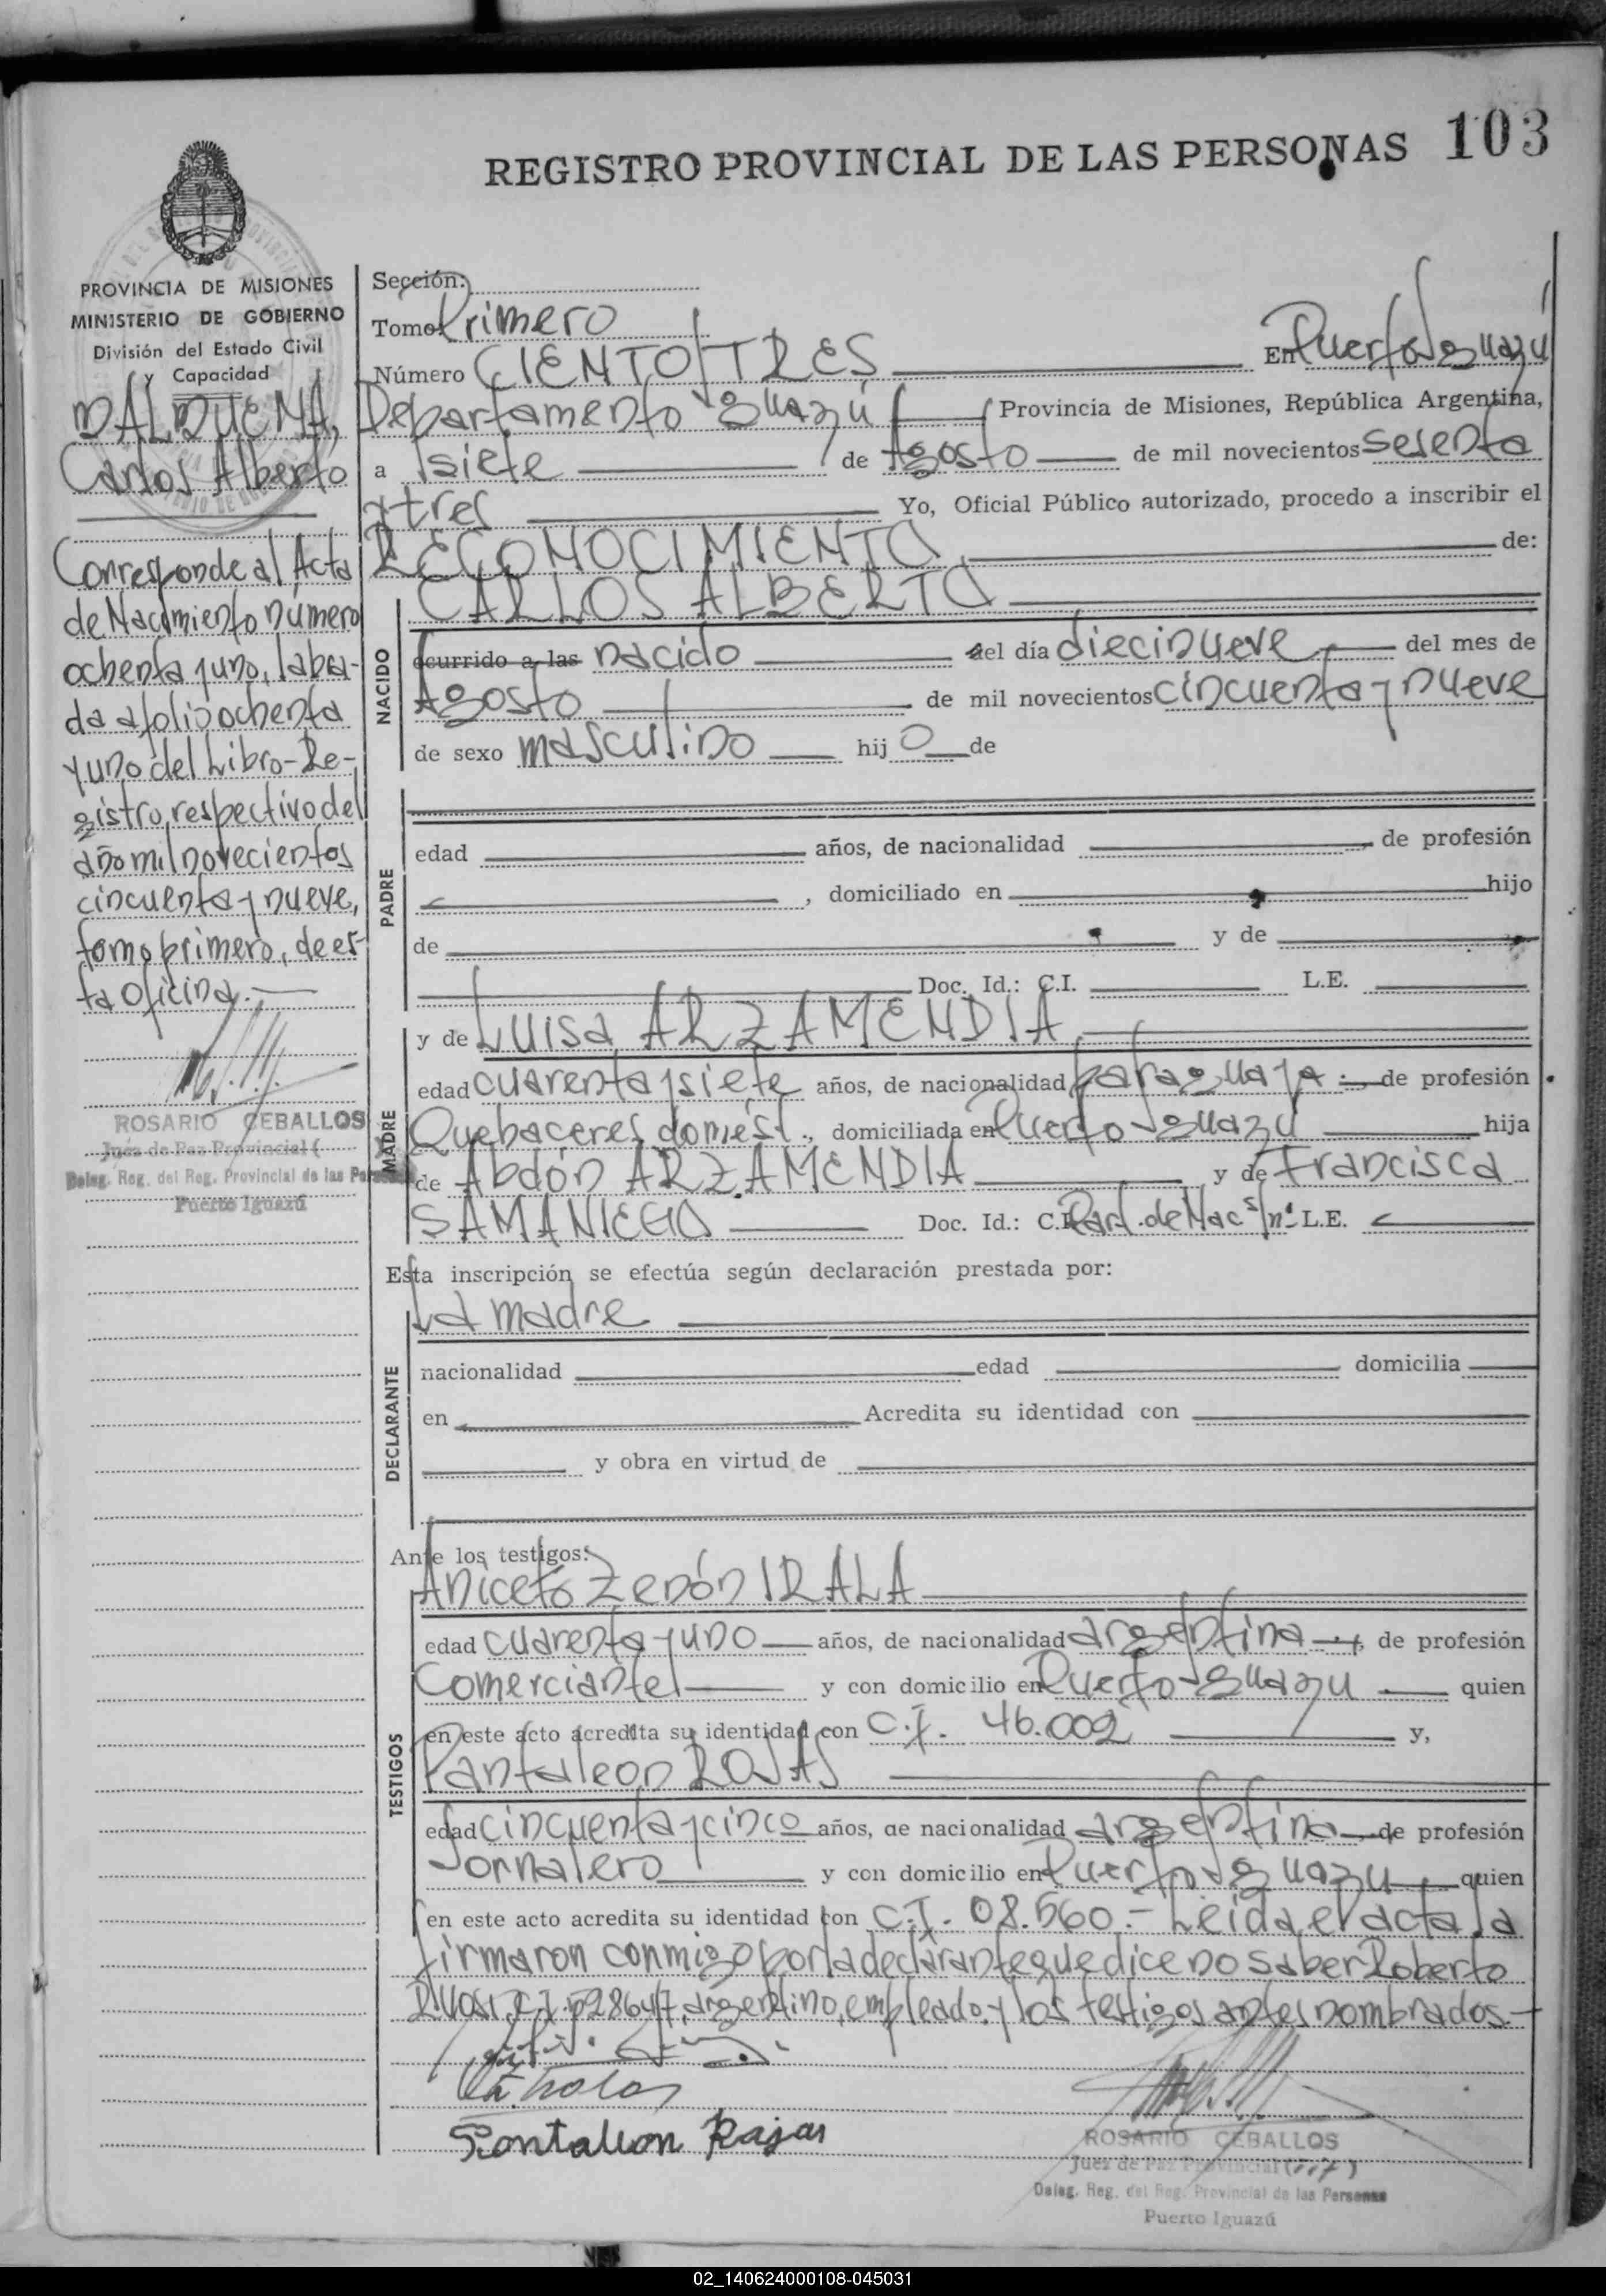 REGISTRO PROVINCIAL DE LAS PERSONAS 103
PROVINCIA DE MISIONES
MINISTERIO DE GOBIERNO
División del Estado Civil
y Capacidad
DALDUENA,
Carlos Alberto
Corresponde al Acta
de Nacimiento número
ochenta y uno, labra-
da a folio ochenta
y uno del Libro-Re-
gistro respectivo del
año mil novecientos
cincuenta y nueve,
tomo primero, de es-
ta Oficina.-
ROSARIO CEBALLOS
Juez de Paz Provincial (
Deleg. Reg. del Reg. Provincial de las Personas
Puerto Iguazú
Sección:
Tomo Primero
Número CIENTO TRES En Puerto Iguazú
Departamento Iguazú Provincia de Misiones, República Argentina,
a siete de Agosto de mil novecientos sesenta
y tres Yo, Oficial Público autorizado, procedo a inscribir el
RECONOCIMIENTO de:
CARLOS ALBERTO
NACIDO
ocurrido a las nacido del día diecinueve del mes de
Agosto de mil novecientos cincuenta y nueve
de sexo masculino hij o de
PADRE
edad años, de nacionalidad de profesión
, domiciliado en hijo
de y de
Doc. Id.: C.I. L.E.
MADRE
y de Luisa ARZAMENDIA
edad cuarenta y siete años, de nacionalidad paraguaya.- de profesión
Quehaceres domést., domiciliada en Puerto Iguazú hija
de Abdón ARZAMENDIA y de Francisca
SAMANIEGO Doc. Id.: C.I. Part. de Nac. s/nº L.E.
Esta inscripción se efectúa según declaración prestada por:
La madre
DECLARANTE
nacionalidad edad domicilia
en Acredita su identidad con
y obra en virtud de
Ante los testigos:
TESTIGOS
Aniceto Zenón IRALA
edad cuarenta y uno años, de nacionalidad argentina, de profesión
Comerciante y con domicilio en Puerto Iguazu quien
en este acto acredita su identidad con C.I. 46.002 y,
Pantaleon ROJAS
edad cincuenta y cinco años, de nacionalidad argentina de profesión
Jornalero y con domicilio en Puerto Iguazu quien
en este acto acredita su identidad con C.I. 08.560.- Leida el acta la
firmaron conmigo por la declarante que dice no saber Roberto
C.I. 528647, argentino, empleado y los testigos antes nombrados.-
Pantaleon Rajas
ROSARIO CEBALLOS
Juez de Paz Provincial (int)
Deleg. Reg. del Reg. Provincial de las Personas
Puerto Iguazú
02_140624000108-045031